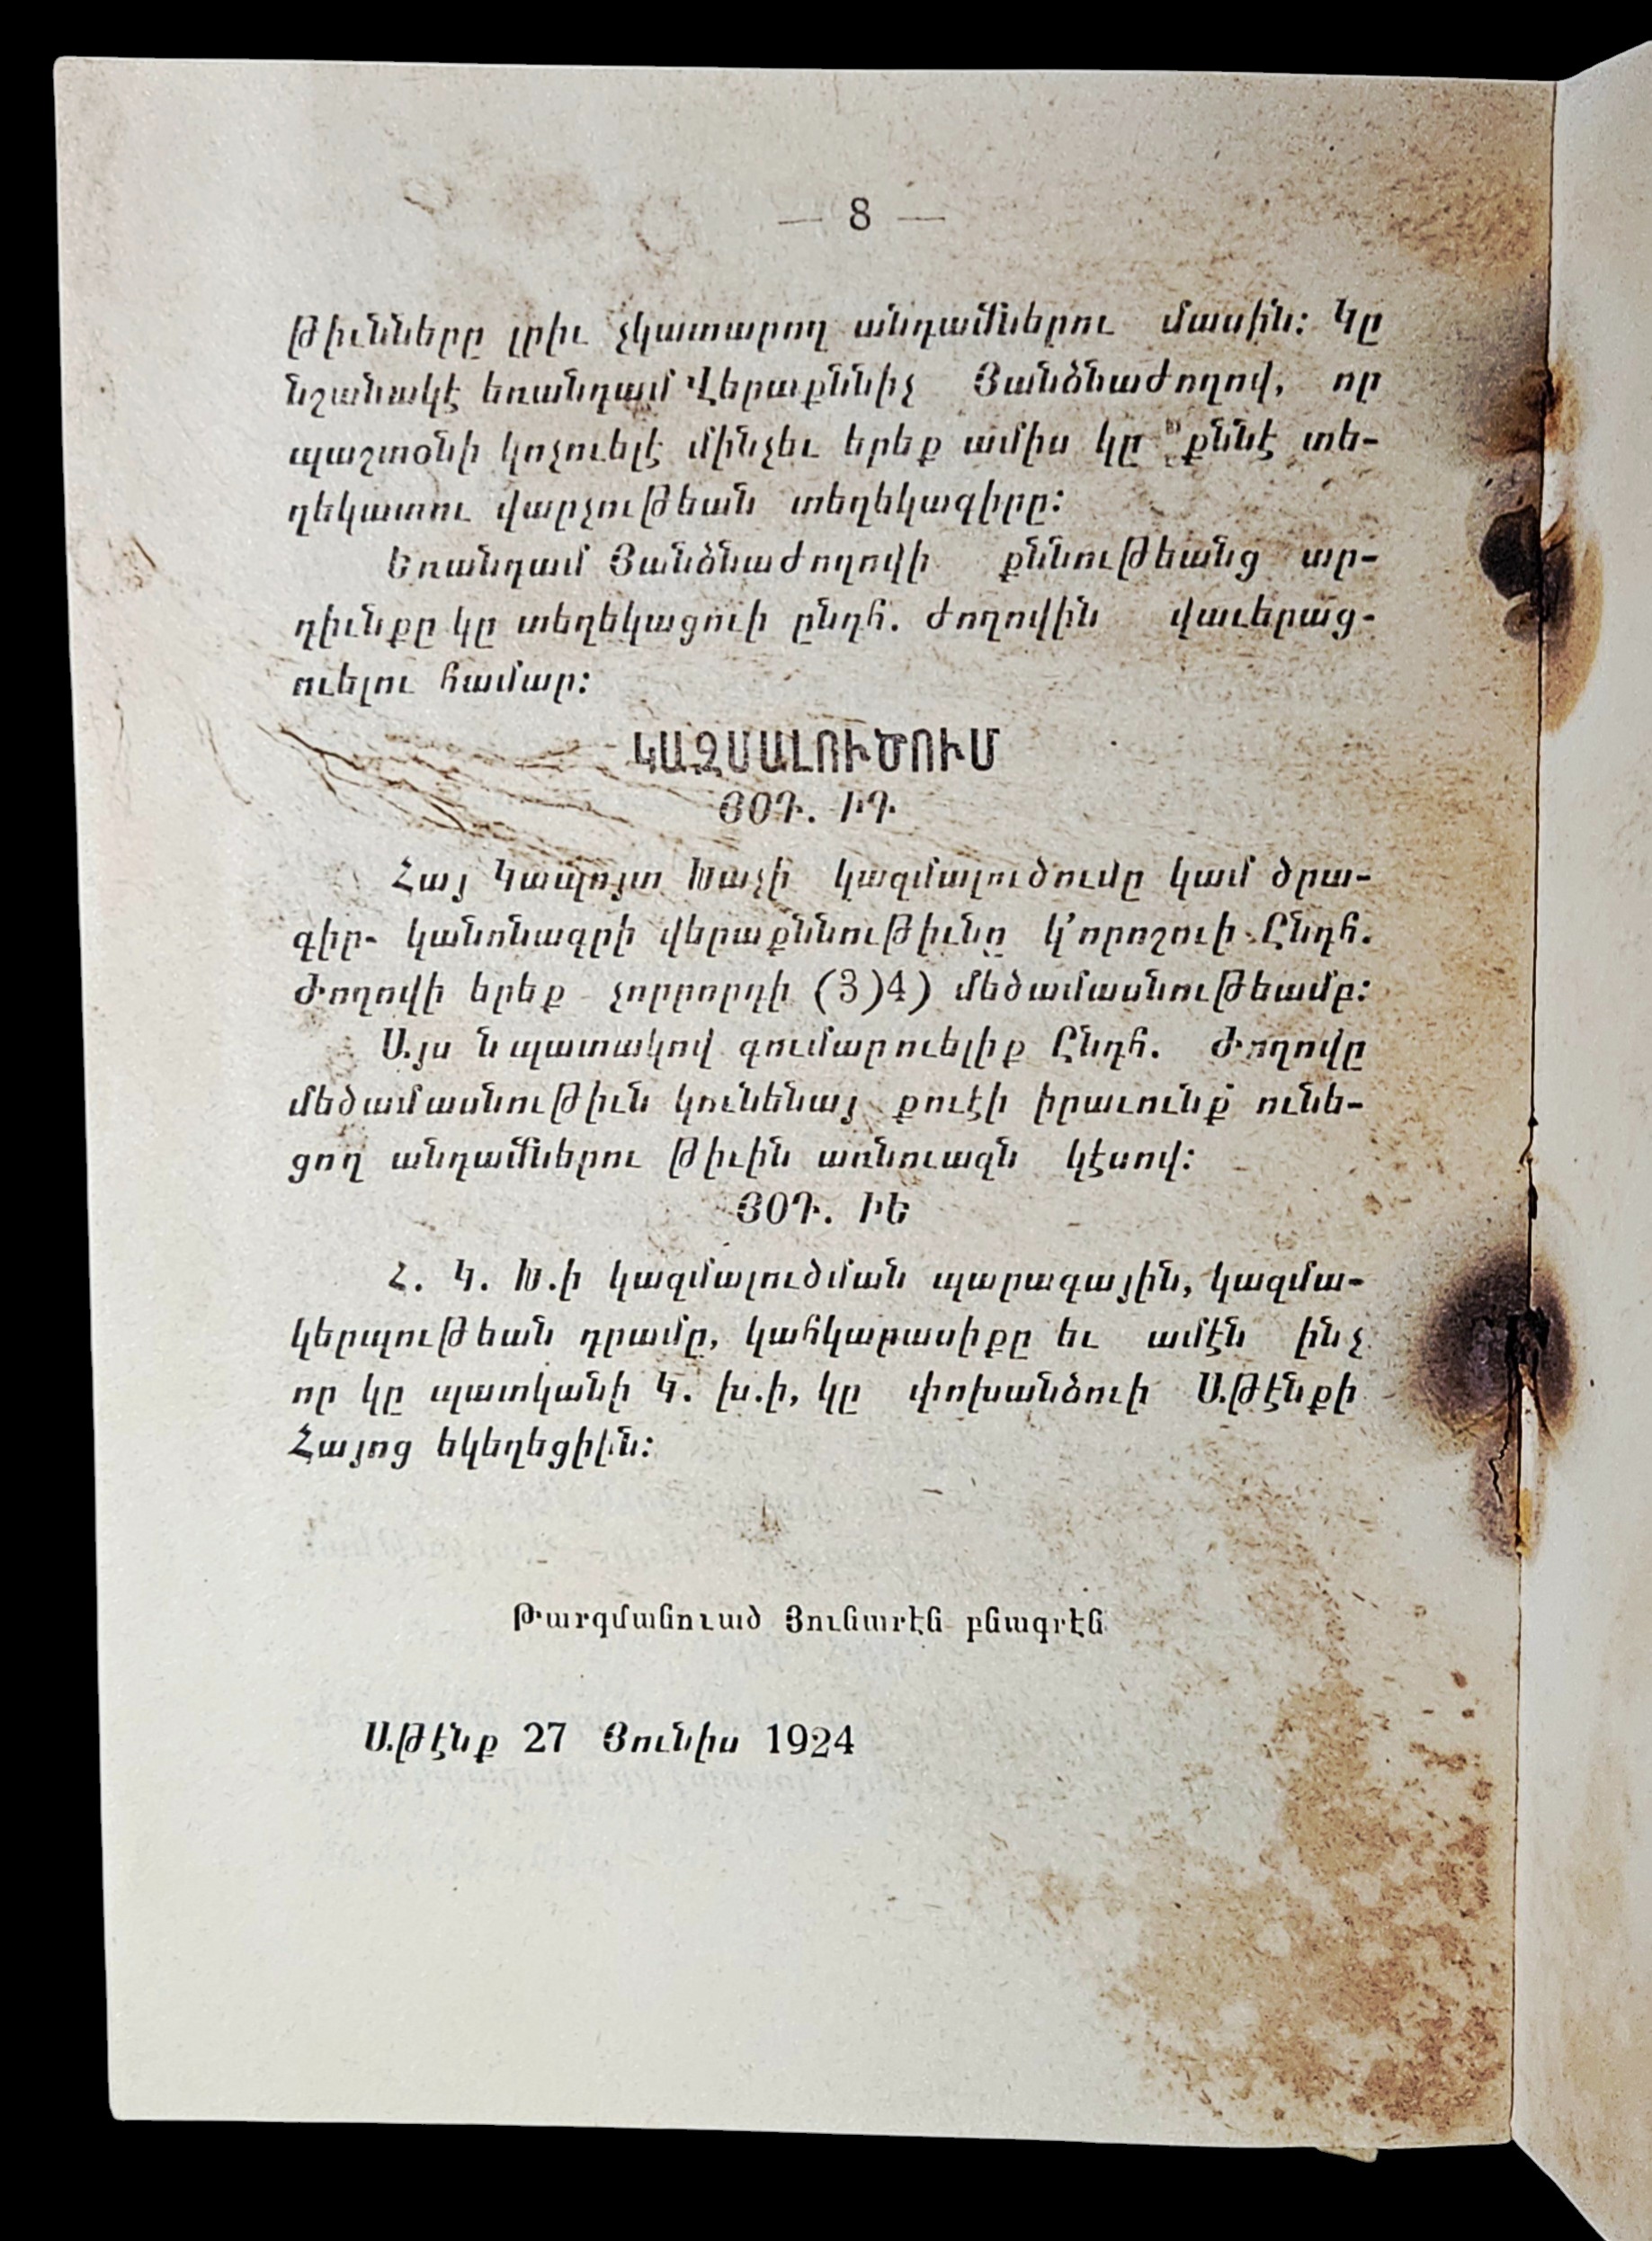 — 8 —
թիւնները լրիւ չկատարող անդամներու մասին: Կը
նշանակէ եռանդամ Վերաքննիչ Յանձնաժողով, որ
պաշտօնի կոչուելէ մինչեւ երեք ամիս կը քննէ տե-
ղեկատու վարչութեան տեղեկագիրը:
Եռանդամ Յանձնաժողովի քննութեանց ար-
դիւնքը կը տեղեկացուի ընդհ. ժողովին վաւերաց-
ուելու համար:
ԿԱԶՄԱԼՈՒԾՈՒՄ
ՅՕԴ. ԻԴ
Հայ Կապոյտ Խաչի կազմալուծումը կամ ծրա-
գիր- կանոնագրի վերաքննութիւնը կ՚որոշուի Ընդհ.
Ժողովի երեք չորրորդի (3)4) մեծամասնութեամբ:
Այս նպատակով գումարուելիք Ընդհ. Ժողովը
մեծամասնութիւն կունենայ քուէի իրաւունք ունե-
ցող անդամներու թիւին առնուազն կէսով:
ՅՕԴ. ԻԵ
Հ. Կ. Խ.ի կազմալուծման պարագային, կազմա-
կերպութեան դրամը, կահկարասիքը եւ ամէն ինչ
որ կը պատկանի Կ. խ.ի, կը փոխանձուի Աթէնքի
Հայոց եկեղեցիին:
Թարգմանուած Յունարէն բնագրէն
Աթէնք 27 Յունիս 1924